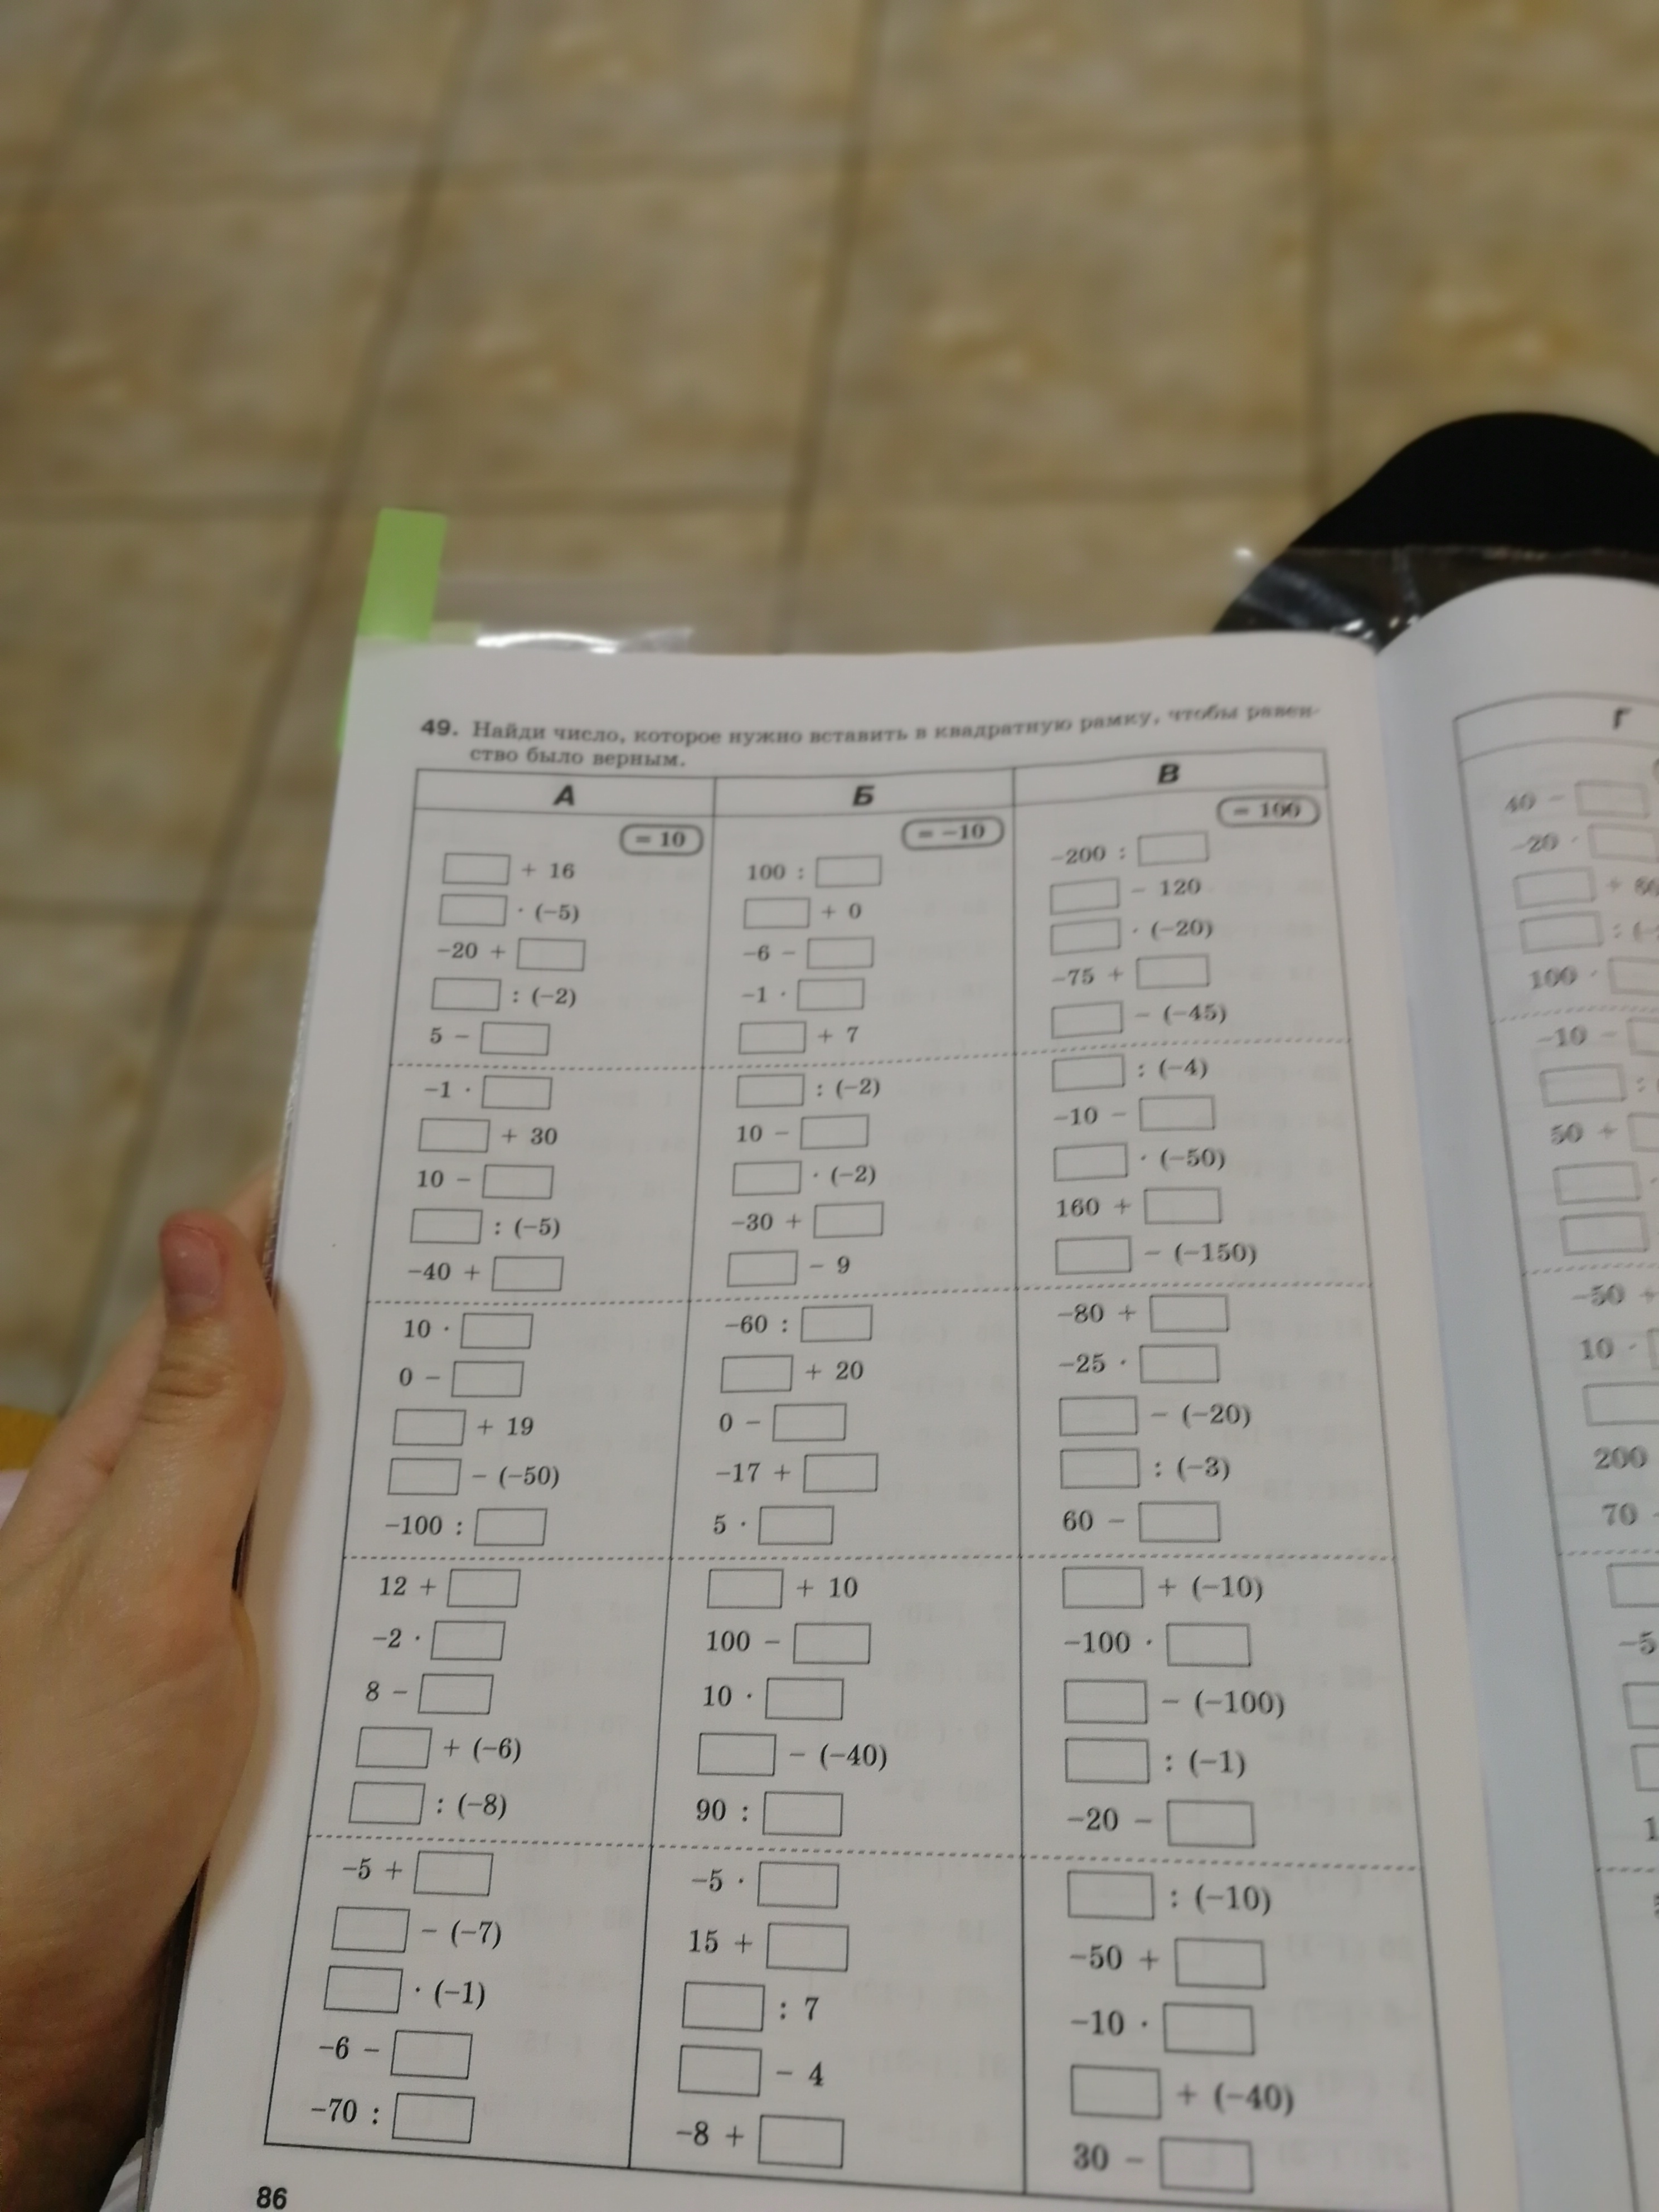 49. Найди число, которое нужно вставить в квадратную рамку, чтобы равен-
ство было верным.
А
= 10
+ 16
· (−5)
−20 +
: (−2)
5 −
−1 ·
+ 30
10 −
: (−5)
−40 +
10 ·
0 −
+ 19
− (−50)
−100 :
12 +
−2 ·
8 −
+ (−6)
: (−8)
−5 +
− (−7)
· (−1)
−6 −
−70 :
Б
= −10
100 :
+ 0
−6 −
−1 ·
+ 7
: (−2)
10 −
· (−2)
−30 +
− 9
−60 :
+ 20
0 −
−17 +
5 ·
+ 10
100 −
10 ·
− (−40)
90 :
−5 ·
15 +
: 7
− 4
−8 +
В
= 100
−200 :
− 120
· (−20)
−75 +
− (−45)
: (−4)
−10 −
· (−50)
160 +
− (−150)
−80 +
−25 ·
− (−20)
: (−3)
60 −
+ (−10)
−100 ·
− (−100)
: (−1)
−20 −
: (−10)
−50 +
−10 ·
+ (−40)
30 −
86
Г
40 −
−20 ·
100 ·
−10 −
50 +
−50 +
10 ·
200
70
−5